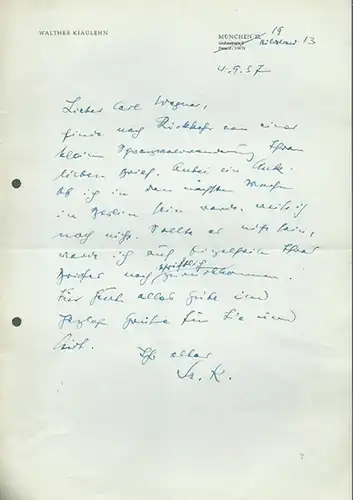 WALTHER KIAULEHN
MÜNCHEN 19
13
4.9.57
Lieber Carl Wegner,
finde nach Rückkehr von einer
kleinen Ihren
lieben Brief. Anbei ein
Ob ich in den nächsten Wochen
in Berlin sein werde, weiß ich
noch nicht. Sollte es nicht sein,
werde ich auf Einzelheiten Ihres
Briefes noch schriftlich zurückkommen.
Für heute alles Gute und
herzlich Grüße für Sie und
Ihr alter
W. K.